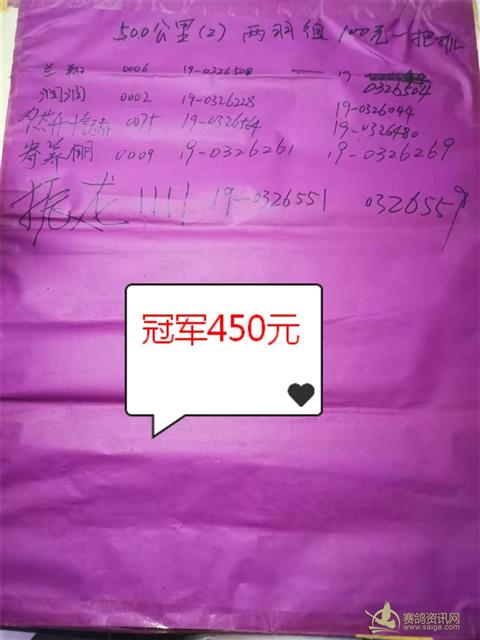 500公里(2) 两羽组 100元一把抓
兰翔 0006 19-0326508 — 19 0326504
润润 0002 19-0326228 19-0326044
19-0326464 19-0326480
寄养棚 0009 19-0326261 19-0326269
振龙 1111 19-0326551 0326559
冠军450元
赛鸽资讯网
www.saige.com